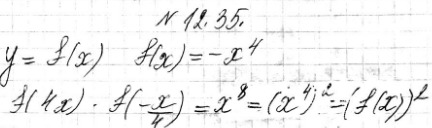 № 12.35.
y = f(x) f(x) = -x⁴
f(4x) · f(-x/4) = x⁸ = (x⁴)² = (f(x))²